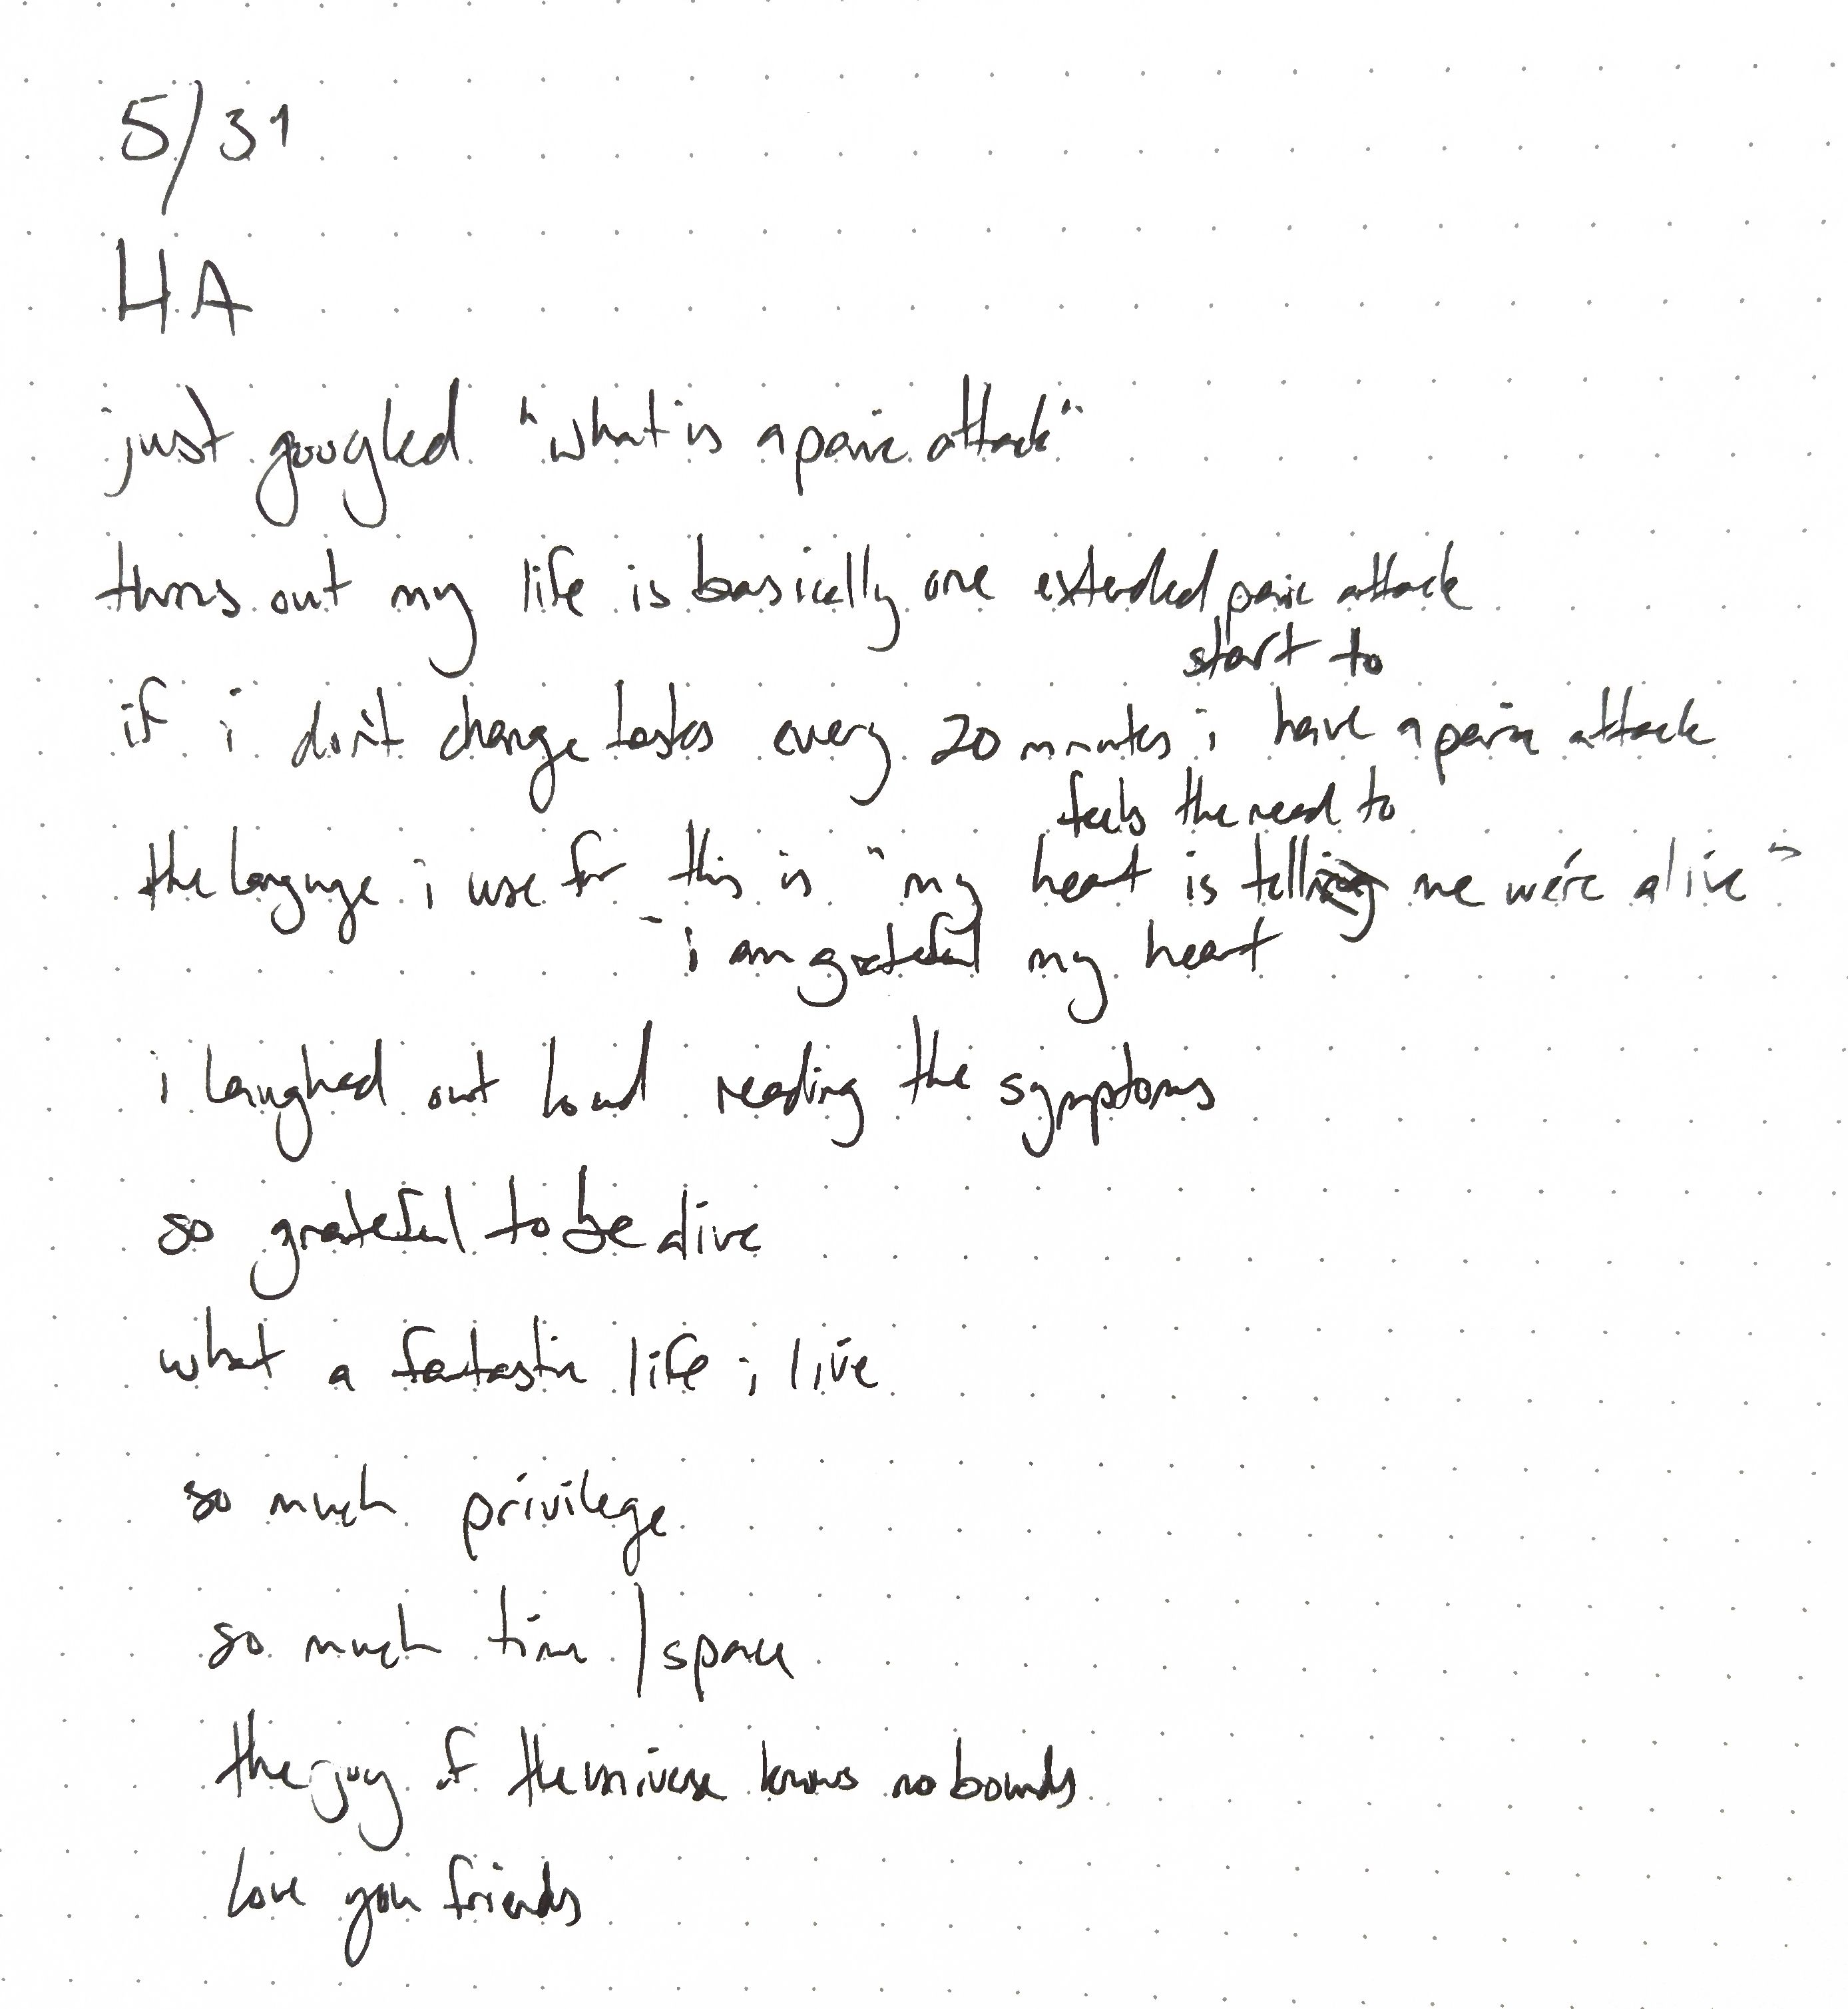 5/31
HA
just googled "what is a panic attack"
turns out my life is basically one extended panic attack
start to
if i don't change tasks every 20 minutes i have a panic attack
feels the need to
the language i use for this is "my heart is telling me we're alive"
"i am grateful my heart
i laughed out loud reading the symptoms
so grateful to be alive
what a fantastic life i live
so much privilege
so much time / space
the joy of the universe knows no bounds
love you friends